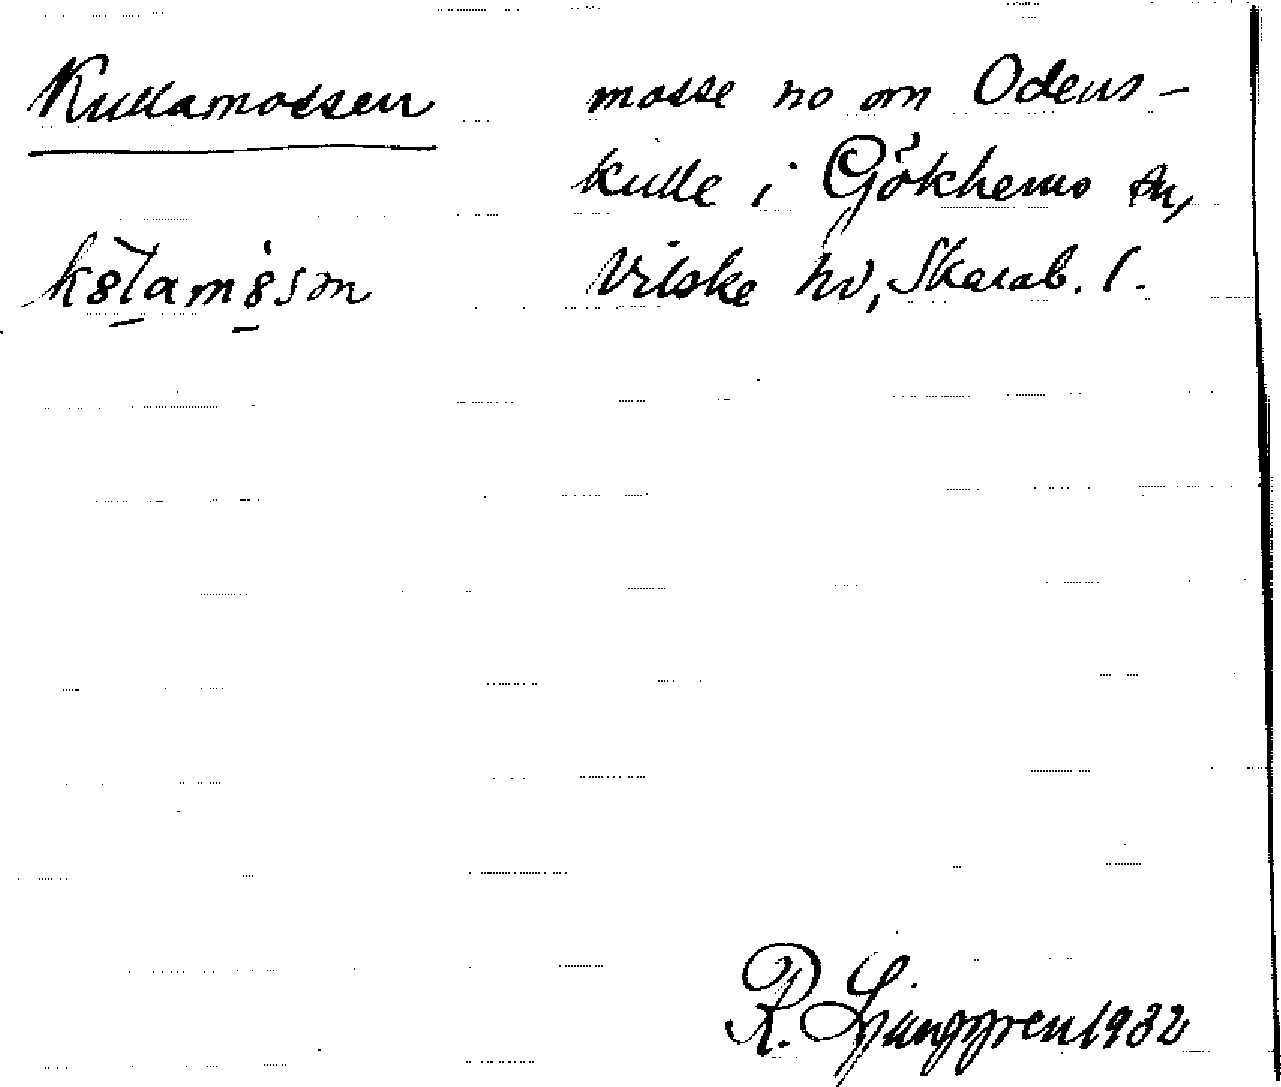 Kullamossen
mosse no om Odens-
kulle i Gökhems sn,
Vilske hd, Skarab. l.
R. Ljunggren 1932